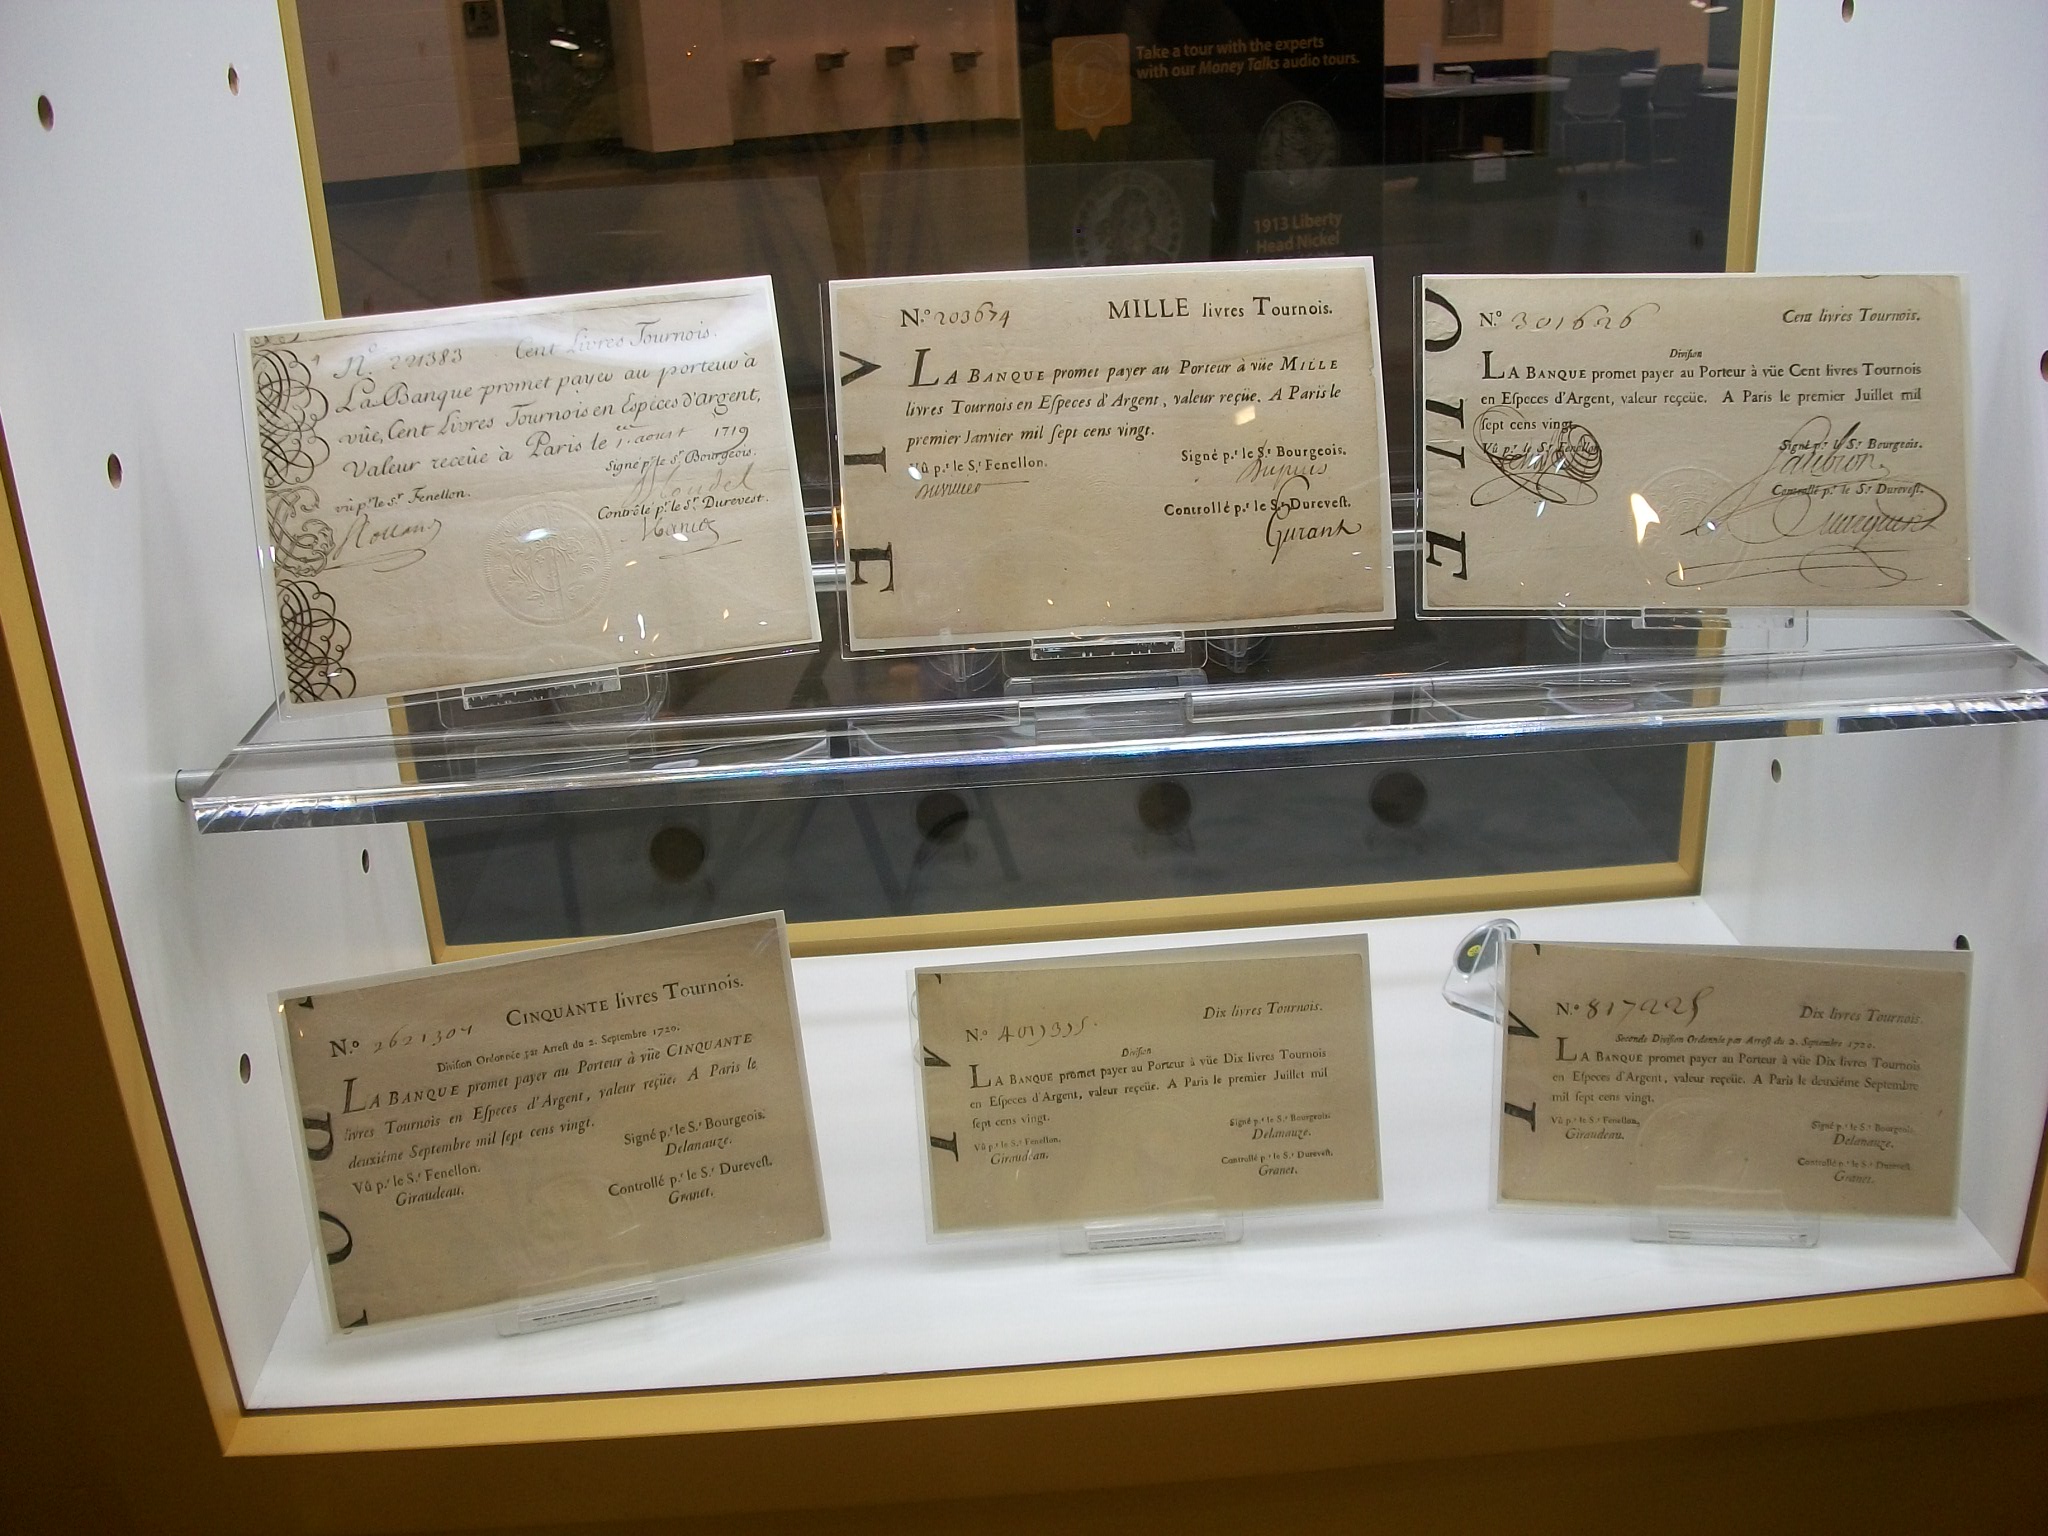 Take a tour with the experts
with our Money Talks audio tours.
1913 Liberty
Head Nickel
N.º 221383 Cent Livres Tournois.
La Banque promet payer au porteur à
vûe, Cent Livres Tournois en Espèces d'Argent,
valeur receüe à Paris le 1.er aoust 1719
Signé p.r le S.r Bourgeois.
vû p.r le S.r Fenellon.
Contrôlé p.r le S.r Durevest.
N.º 203674 MILLE livres Tournois.
LA BANQUE promet payer au Porteur à vüe MILLE
livres Tournois en Eſpeces d'Argent, valeur reçüe. A Paris le
premier Janvier mil ſept cens vingt.
Vû p.r le S.r Fenellon.
Signé p.r le S.r Bourgeois.
Controllé p.r le S.r Dureveſt.
Gurant
V I E
N.º 301626 Cent livres Tournois.
Diviſion
LA BANQUE promet payer au Porteur à vüe Cent livres Tournois
en Eſpeces d'Argent, valeur reçeüe. A Paris le premier Juillet mil
ſept cens vingt.
Vû p.r le S.r Fenellon
Signé p.r le S.r Bourgeois.
Controllé p.r le S.r Dureveſt.
N.º 2621304 CINQUANTE livres Tournois.
Diviſion Ordonnée par Arreſt du 2. Septembre 1720.
LA BANQUE promet payer au Porteur à vüe CINQUANTE
livres Tournois en Eſpeces d'Argent, valeur reçüe. A Paris le
deuxiéme Septembre mil ſept cens vingt.
Vû p.r le S.r Fenellon.
Giraudeau.
Signé p.r le S.r Bourgeois.
Delanauze.
Controllé p.r le S.r Dureveſt.
Granet.
N.º Dix livres Tournois.
Diviſion
LA BANQUE promet payer au Porteur à vüe Dix livres Tournois
en Eſpeces d'Argent, valeur reçeüe. A Paris le premier Juillet mil
ſept cens vingt.
Vû p.r le S.r Fenellon.
Giraudeau.
Signé p.r le S.r Bourgeois.
Delanauze.
Controllé p.r le S.r Dureveſt.
Granet.
N.º 817225 Dix livres Tournois.
Seconde Diviſion Ordonnée par Arreſt du 2. Septembre 1720.
LA BANQUE promet payer au Porteur à vüe Dix livres Tournois
en Eſpeces d'Argent, valeur reçeüe. A Paris le deuxiéme Septembre
mil ſept cens vingt.
Vû p.r le S.r Fenellon.
Giraudeau.
Signé p.r le S.r Bourgeois.
Delanauze.
Controllé p.r le S.r Dureveſt.
Granet.